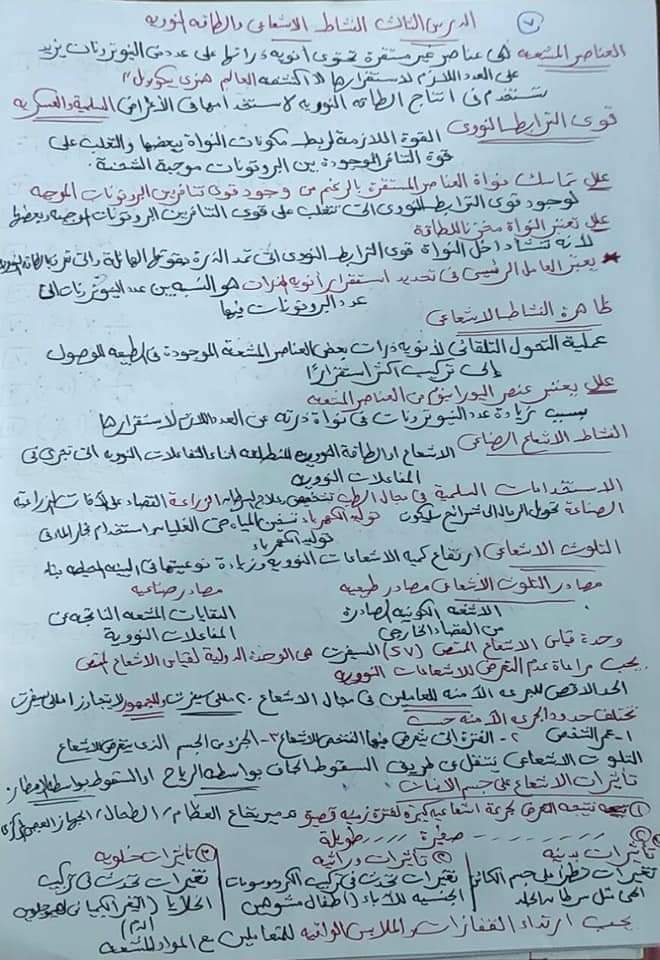 ٧
الدرس الثالث النشاط الاشعاعى والطاقه النوويه
العناصر المشعه هى عناصر غير مستقرة تحتوى أنوية ذراتها على عدد من النيوترونات يزيد
على العدد اللازم لاستقرارها اكتشفه العالم هنرى بيكوريل
تستخدم فى انتاج الطاقه النوويه لاستخدامها فى الأغراض السلمية والعسكريه
قوى الترابط النووى القوة اللازمة لربط مكونات النواة ببعضها والتغلب على
قوة التنافر الموجودة بين البروتونات موجبة الشحنة
علل تماسك نواة العناصر المستقرة بالرغم من وجود قوى تنافر بين البروتونات الموجبه
لوجود قوى الترابط النووى التى تتغلب على قوى التنافر بين البروتونات الموجبه
علل تعتبر النواة مخزن للطاقة
لأنه تنشأ داخل النواة قوى الترابط النووى التى تمد الذرة بقوتها الهائلة والتى تعرف بالطاقة النوويه
* يعتبر العامل الرئيسى فى تحديد استقرار أنوية الذرات هو النسبه بين عدد النيوترونات الى
عدد البروتونات فيها
ظاهرة النشاط الاشعاعى
عملية التحول التلقائى لأنوية ذرات بعض العناصر المشعة الموجودة فى الطبيعه للوصول
إلى تركيب اكثر استقرارًا
علل يعتبر عنصر اليورانيوم من العناصر المشعه
بسبب زيادة عدد النيوترونات فى نواة ذرته عن العدد اللازم لاستقرارها
النشاط الاشعاعى الصناعى الاشعاع او الطاقة النوويه المنطلقه أثناء التفاعلات النوويه التى تجرى فى
المفاعلات النوويه
الاستخدامات السلمية فى مجال الطب تشخيص وعلاج الزراعة القضاء على الآفات الزراعيه
الصناعة تحويل الرمال الى شرائح سليكون توليد الكهرباء تسخين المياه حتى الغليان واستخدام بخار الماء فى
توليد الكهرباء
التلوث الاشعاعى ارتفاع كميه الاشعاعات النوويه وزيادة نوعيتها فى البيئه المحيطه بنا
مصادر التلوث الاشعاعى مصادر طبيعيه مصادر صناعيه
الاشعه الكونيه الصادرة النفايات المشعه الناتجه عن
من الفضاء الخارجى المفاعلات النووية
وحدة قياس الاشعاع الممتص (SV) السيفرت هى الوحدة الدولية لقياس الاشعاع الممتص
يجب مراعاة عدم التعرض للاشعاعات النوويه
الحد الاقصى للجرعه الأمنه للعاملين فى مجال الاشعاع ٢٠ مللى سيفرت وللجمهور لا يتجاوز ١ مللى سيفرت
تختلف حدود الجرعه الأمنه حسب
١- عمر الشخص ٢- الفترة التى يتعرض فيها الشخص للاشعاع ٣- الجزء من الجسم الذى يتعرض للاشعاع
التلوث الاشعاعى ينتقل عن طريق السقوط الجاف بواسطه الرياح او السقوط بواسطه الامطار
تأثيرات الاشعاع على جسم الانسان
① نتيجه التعرض لجرعة اشعاعيه كبيرة لفترة زمنيه قصيره تدمير نخاع العظام، الطحال، الجهاز العصبى المركزى
② صغيرة طويلة
تأثيرات بدنيه ② تأثيرات وراثيه ③ تأثيرات خلويه
تغيرات تطرأ على جسم الكائن تغيرات تحدث فى تركيب الكروموسومات تغيرات تحدث فى تركيب
الحى مثل سرطان الجلد الجنسيه للأباء (أطفال مشوهين) الخلايا (التغير الكيميائى لهيموجلوبين
الدم)
يجب ارتداء القفازات والملابس الواقيه للمتعاملين مع المواد المشعه